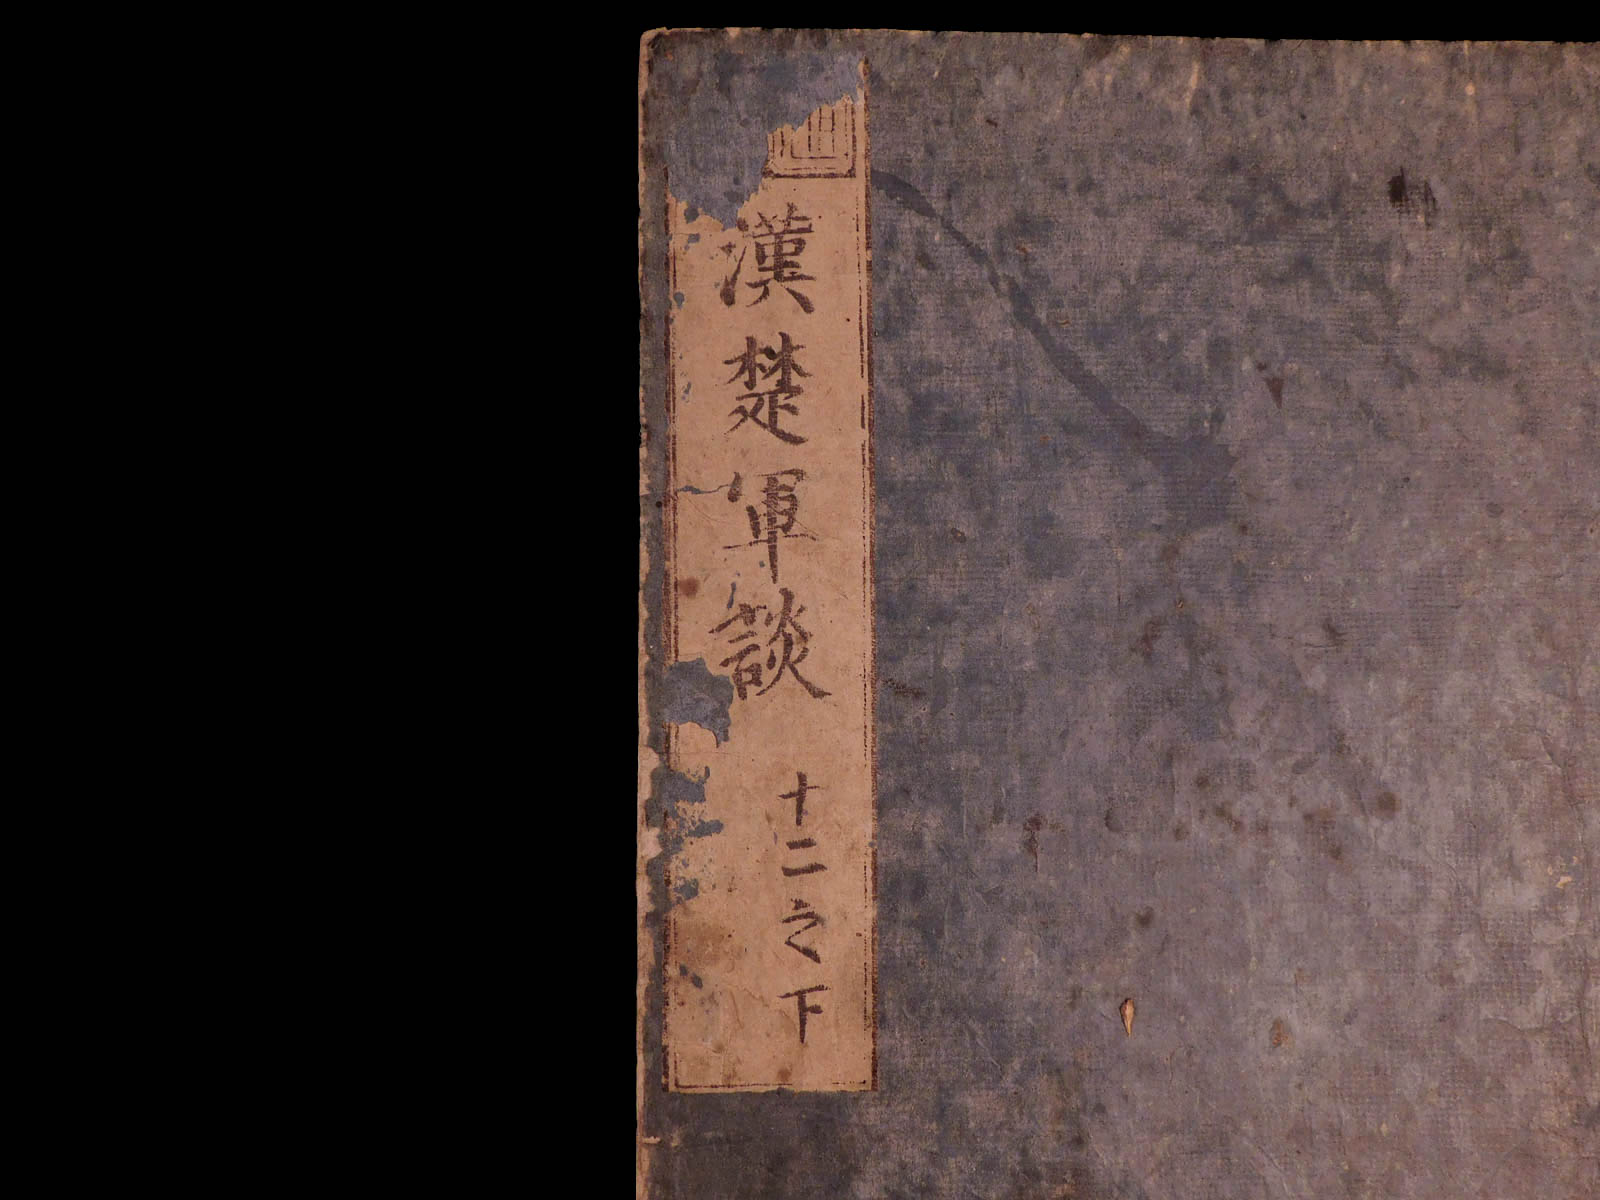 漢楚軍談
十二之下